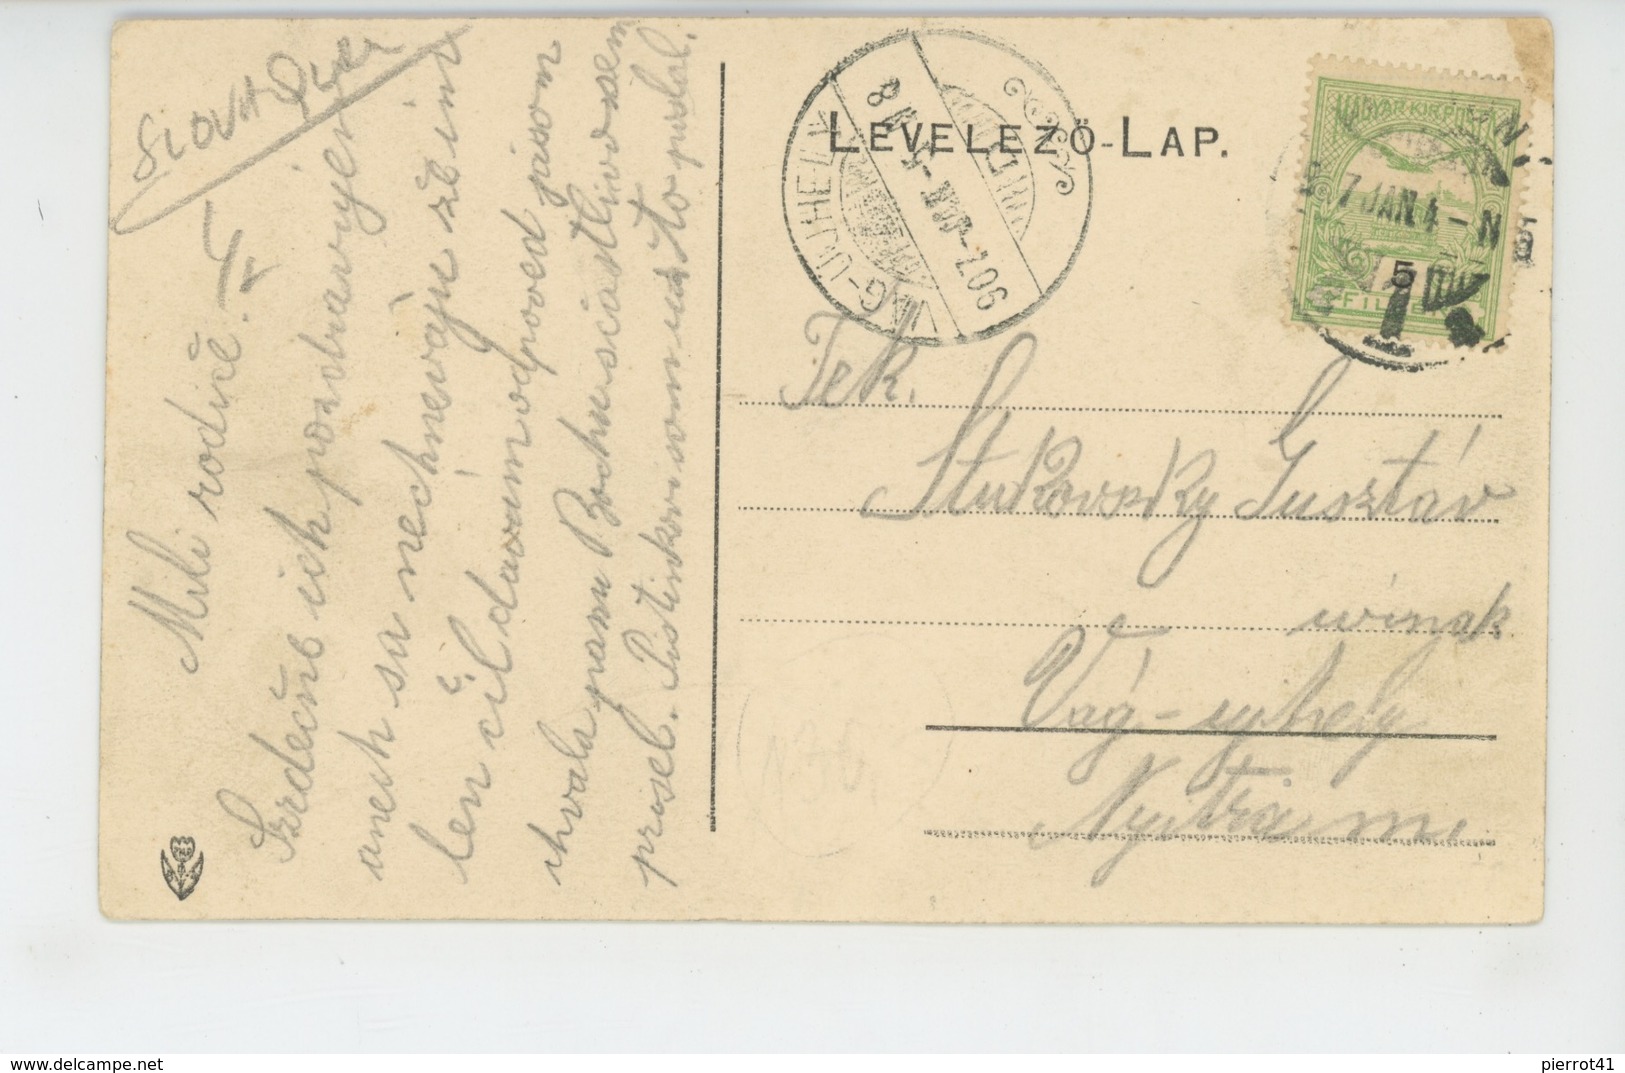 SLOVAQUIE
Mili rodiče!
Szrdečné ich pozdravujem
anech sa nechnevaju že im
len čil davám odpoved jasom
chvala panu Bochu sciastlivo sem
prosel. Pistinkovi som us to poslal.
LEVELEZŐ-LAP.
VÁG-UJHELY
907 JAN
MAGYAR KIR. POSTA
7 JAN 4-N
5
FILLÉR
Tek.
Stukovszky Gusztáv
urinak
Vág-ujhely
Nyitra m.
130
pierrot41